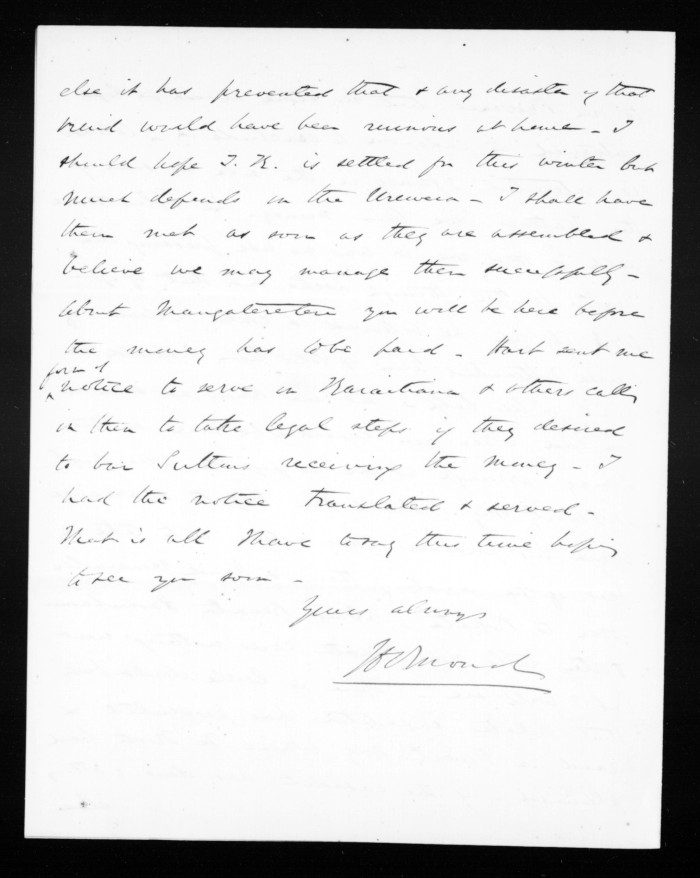 else it has prevented that & any disaster of that
kind would have been ruinous at home - I
should hope T. K. is settled for this winter but
much depends on the Urewera - I shall have
them met as soon as they are assembled &
believe we may manage them successfully -
about Mangateretere you will be here before
the money has to be paid - Hart sent me
form of
notice to serve on Karaitiana & others calling
on them to take legal steps if they desired
to bar Suttons receiving the money - I
had the notice translated & served -
That is all I have to say this time hoping
to see you soon -
Yours always
J D Ormond